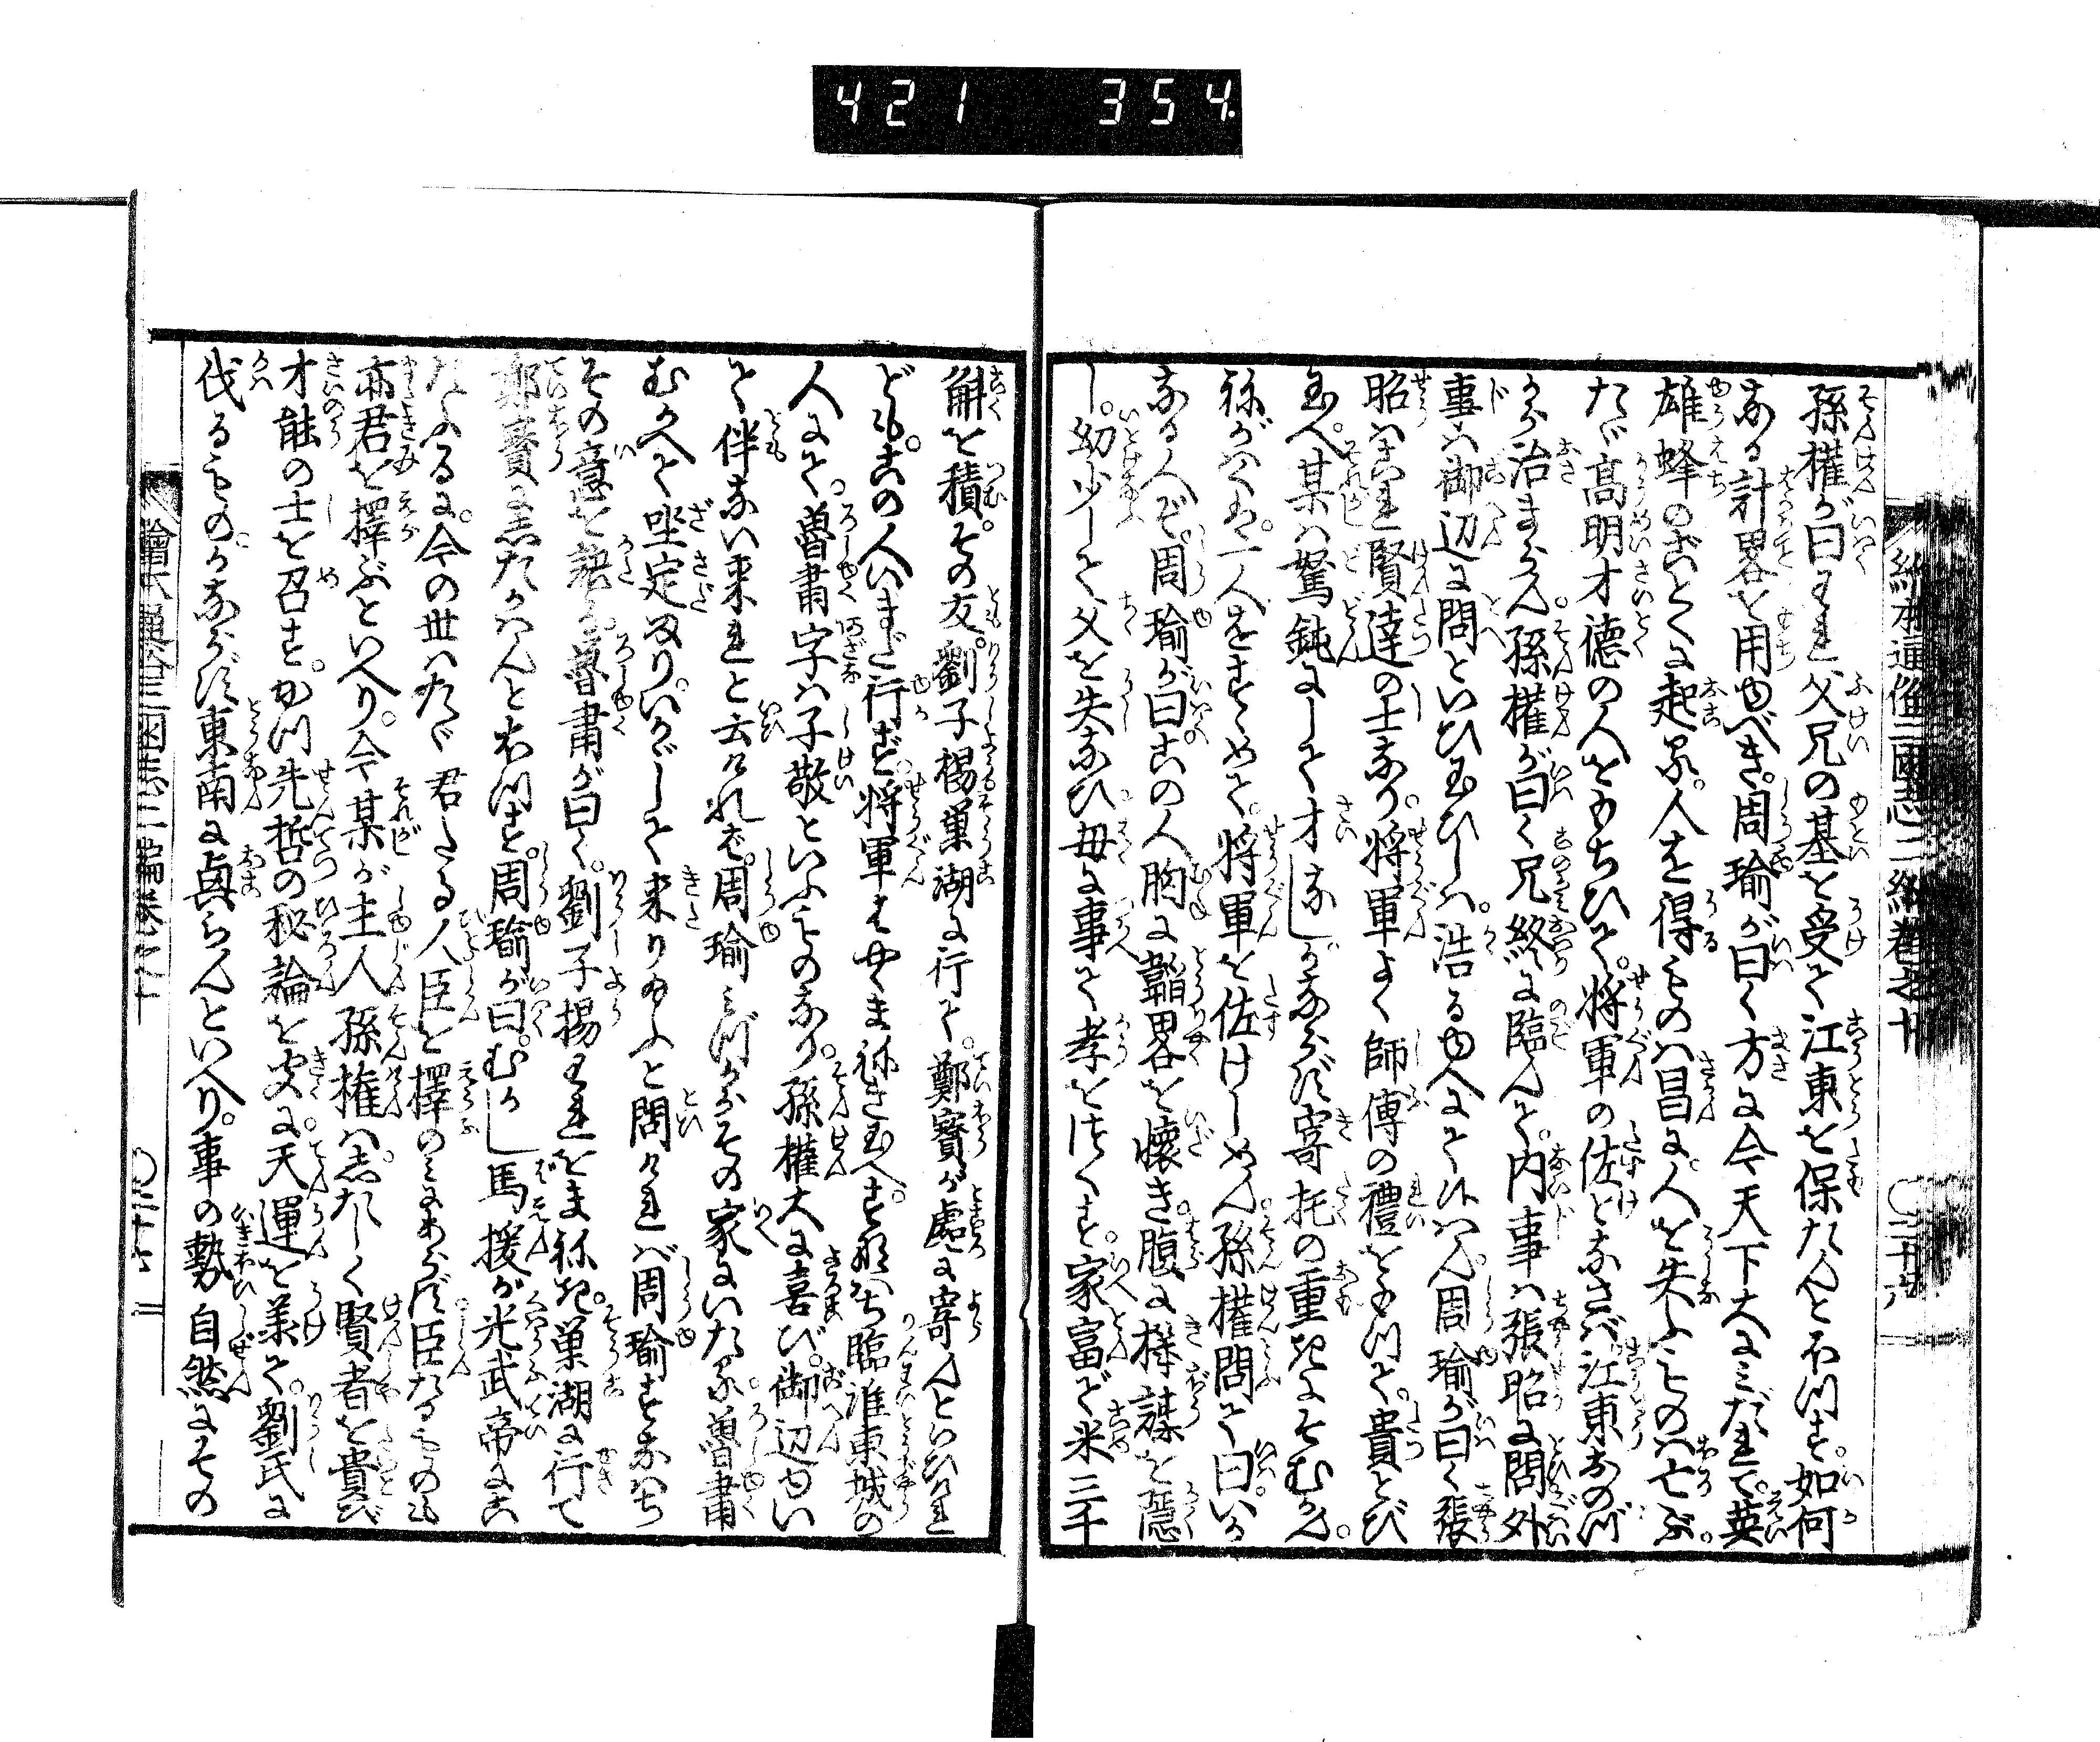 421 354
孫權が曰われ父兄の基を受て江東を保たんとおもつす。如何
なる計畧を用ゆべき。周瑜が曰く方に今天下大にみだれて。英
雄蜂のごとくに起る。人を得るものは昌に。人を失ふものは亡ぶ。
たゞ高明才徳の人をもちひて。将軍の佐となさば江東おのづ
から治まらん。孫權が曰く兄終に臨んで。内事は張昭に問外
事は御辺に問といひ玉ひしは。浩る由へにて候はん周瑜が曰く張
昭はこれ賢達の士なり。将軍よく師傅の禮をもつて。貴とび
玉へ。某は駑鈍にして才なしがながら寄托の重きにそむかん。
ねがはくは。一人をすゝめて。将軍を佐けしめん。孫權問て曰いか
なる人ぞ。周瑜が曰。この人胸に韜畧を懐き。腹に機謀を隠
し。幼少して父を失なひ。母に事て孝をつくす。家富で米三千
斛を積。その友。劉子楊巣湖に行て。鄭寳が處に寄んといひけれ
ども。この人いまだ行ず。将軍はやくまねき玉へ。すなはち臨淮東城の
人にて。魯肅字は子敬といふものなり。孫權大に喜び。御辺ゆい
て伴ない来れと云ければ。周瑜みづからその家にいたる。魯肅
むかへて坐定まり。いかゞして来り玉ふと問ければ周瑜すなはち
その意を説。魯肅が曰く。劉子揚われをまねき。巣湖に行て
鄭寳にしたがはんと存ず。周瑜が曰。むかし馬援が光武帝にこ
たふるに。今の世はたゞ君たる人臣を擇のみにあらず。臣たるものも
亦君を擇ぶといへり。今某が主人孫権は。したしく賢者を貴び
才能の士を召す。かつ先哲の秘論を聞に。天運を兼て。劉氏に
伐るものかならず東南に興らんといへり。事の勢自然にその